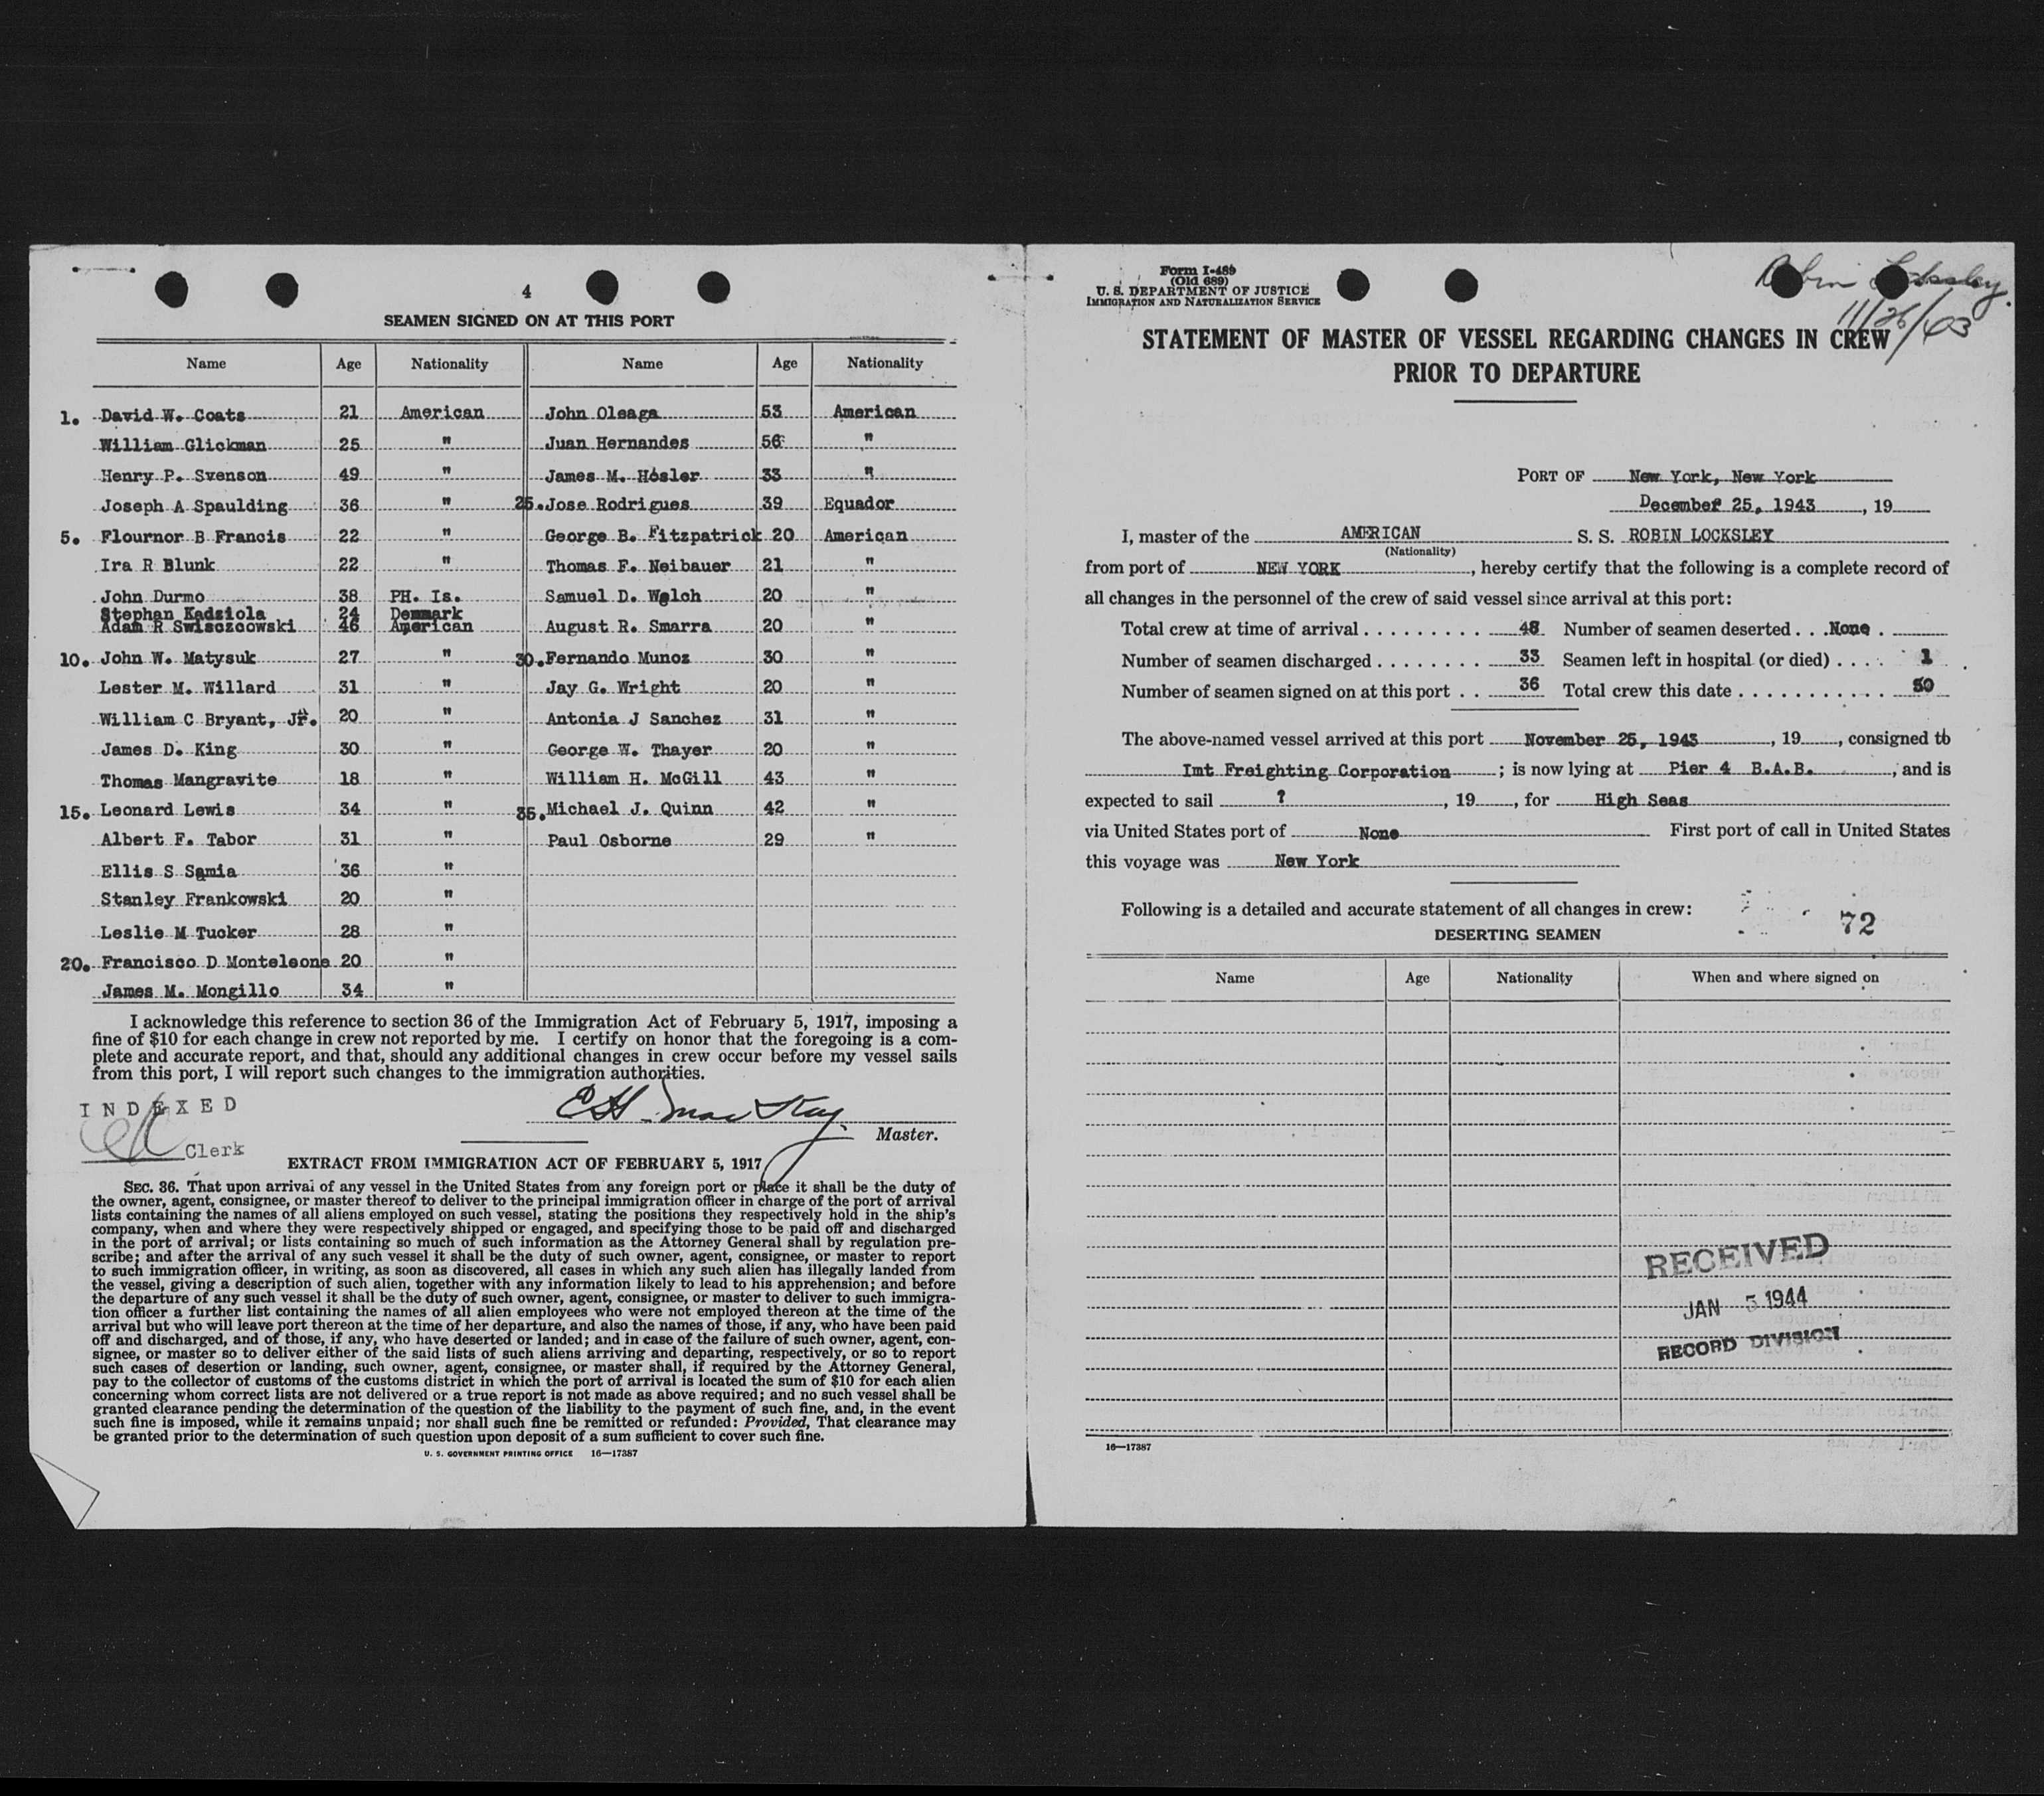 4
SEAMEN SIGNED ON AT THIS PORT
Name Age Nationality Name Age Nationality
1. David W. Coats 21 American John Oleaga 53 American
William Glickman 25 " Juan Hernandes 56 "
Henry P. Svenson 49 " James M. Hosler 33 "
Joseph A Spaulding 36 " 25. Jose Rodrigues 39 Equador
5. Flournor B Francis 22 " George B. Fitzpatrick 20 American
Ira R Blunk 22 " Thomas F. Neibauer 21 "
John Durmo 38 PH. Is. Samuel D. Welch 20 "
Stephan Kadziola 24 Denmark
Adam R Swisczcowski 46 American August R. Smarra 20 "
10. John W. Matysuk 27 " 30. Fernando Munoz 30 "
Lester M. Willard 31 " Jay G. Wright 20 "
William C Bryant, Jr. 20 " Antonia J Sanchez 31 "
James D. King 30 " George W. Thayer 20 "
Thomas Mangravite 18 " William H. McGill 43 "
15. Leonard Lewis 34 " 35. Michael J. Quinn 42 "
Albert F. Tabor 31 " Paul Osborne 29 "
Ellis S Samia 36 "
Stanley Frankowski 20 "
Leslie M Tucker 28 "
20. Francisco D Monteleone 20 "
James M. Mongillo 34 "
I acknowledge this reference to section 36 of the Immigration Act of February 5, 1917, imposing a
fine of $10 for each change in crew not reported by me. I certify on honor that the foregoing is a com-
plete and accurate report, and that, should any additional changes in crew occur before my vessel sails
from this port, I will report such changes to the immigration authorities.
INDEXED
E H MacKay
Master.
Clerk
EXTRACT FROM IMMIGRATION ACT OF FEBRUARY 5, 1917
SEC. 36. That upon arrival of any vessel in the United States from any foreign port or place it shall be the duty of
the owner, agent, consignee, or master thereof to deliver to the principal immigration officer in charge of the port of arrival
lists containing the names of all aliens employed on such vessel, stating the positions they respectively hold in the ship's
company, when and where they were respectively shipped or engaged, and specifying those to be paid off and discharged
in the port of arrival; or lists containing so much of such information as the Attorney General shall by regulation pre-
scribe; and after the arrival of any such vessel it shall be the duty of such owner, agent, consignee, or master to report
to such immigration officer, in writing, as soon as discovered, all cases in which any such alien has illegally landed from
the vessel, giving a description of such alien, together with any information likely to lead to his apprehension; and before
the departure of any such vessel it shall be the duty of such owner, agent, consignee, or master to deliver to such immigra-
tion officer a further list containing the names of all alien employees who were not employed thereon at the time of the
arrival but who will leave port thereon at the time of her departure, and also the names of those, if any, who have been paid
off and discharged, and of those, if any, who have deserted or landed; and in case of the failure of such owner, agent, con-
signee, or master so to deliver either of the said lists of such aliens arriving and departing, respectively, or so to report
such cases of desertion or landing, such owner, agent, consignee, or master shall, if required by the Attorney General,
pay to the collector of customs of the customs district in which the port of arrival is located the sum of $10 for each alien
concerning whom correct lists are not delivered or a true report is not made as above required; and no such vessel shall be
granted clearance pending the determination of the question of the liability to the payment of such fine, and, in the event
such fine is imposed, while it remains unpaid; nor shall such fine be remitted or refunded: Provided, That clearance may
be granted prior to the determination of such question upon deposit of a sum sufficient to cover such fine.
U. S. GOVERNMENT PRINTING OFFICE 16—17387
Form I-489
(Old 689)
U. S. DEPARTMENT OF JUSTICE
IMMIGRATION AND NATURALIZATION SERVICE
Robin Locksley
11/26/43
STATEMENT OF MASTER OF VESSEL REGARDING CHANGES IN CREW
PRIOR TO DEPARTURE
PORT OF New York, New York
December 25, 1943, 19
I, master of the AMERICAN S. S. ROBIN LOCKSLEY
(Nationality)
from port of NEW YORK, hereby certify that the following is a complete record of
all changes in the personnel of the crew of said vessel since arrival at this port:
Total crew at time of arrival . . . . . . . . . 48 Number of seamen deserted . . . None .
Number of seamen discharged . . . . . . . . 33 Seamen left in hospital (or died) . . . . 1
Number of seamen signed on at this port . . 36 Total crew this date . . . . . . . . . . . . 50
The above-named vessel arrived at this port November 25, 1943, 19, consigned to
Imt Freighting Corporation; is now lying at Pier 4 B.A.B., and is
expected to sail ?, 19, for High Seas
via United States port of None First port of call in United States
this voyage was New York
Following is a detailed and accurate statement of all changes in crew:
72
DESERTING SEAMEN
Name Age Nationality When and where signed on
RECEIVED
JAN 3 1944
RECORD DIVISION
16—17387